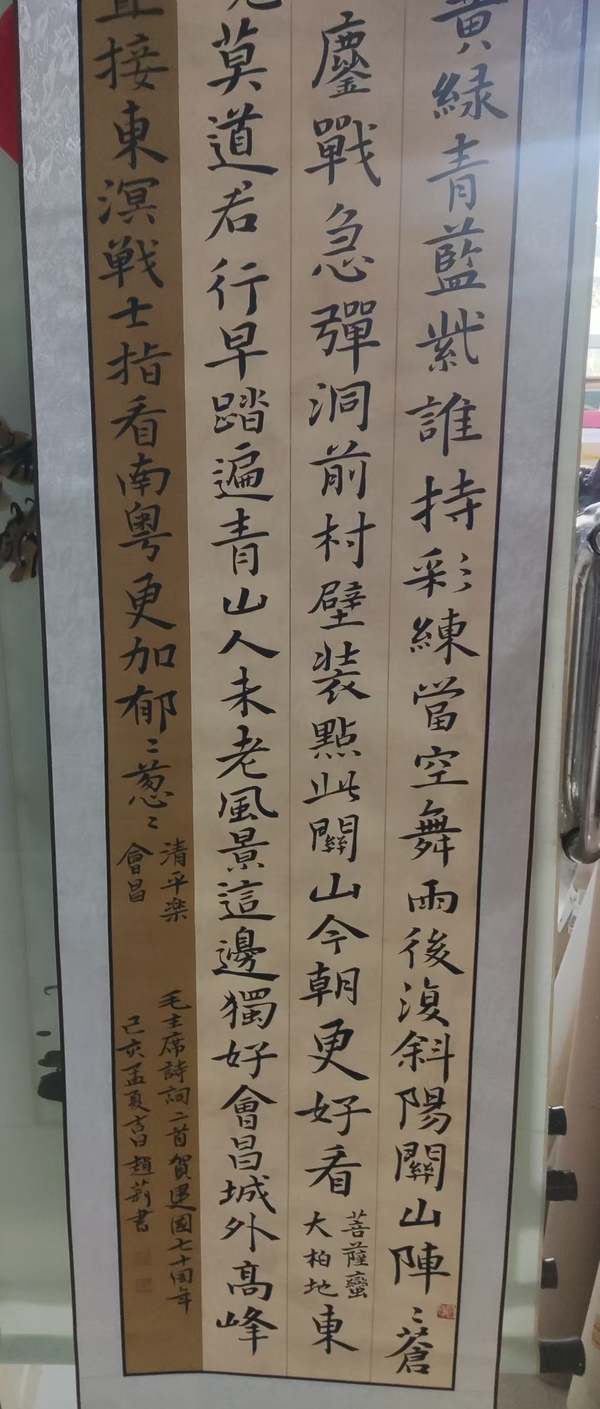 黄綠青藍紫誰持彩練當空舞雨後復斜陽關山陣〻蒼
鏖戰急彈洞前村壁装點此關山今朝更好看
菩薩蠻
大柏地
東
莫道君行早踏遍青山人未老風景這邊獨好會昌城外高峰
直接東溟戦士指看南粤更加郁〻葱〻
清平楽
會昌
毛主席詩詞二首賀建國七十周年
己亥孟夏吉日趙莉書